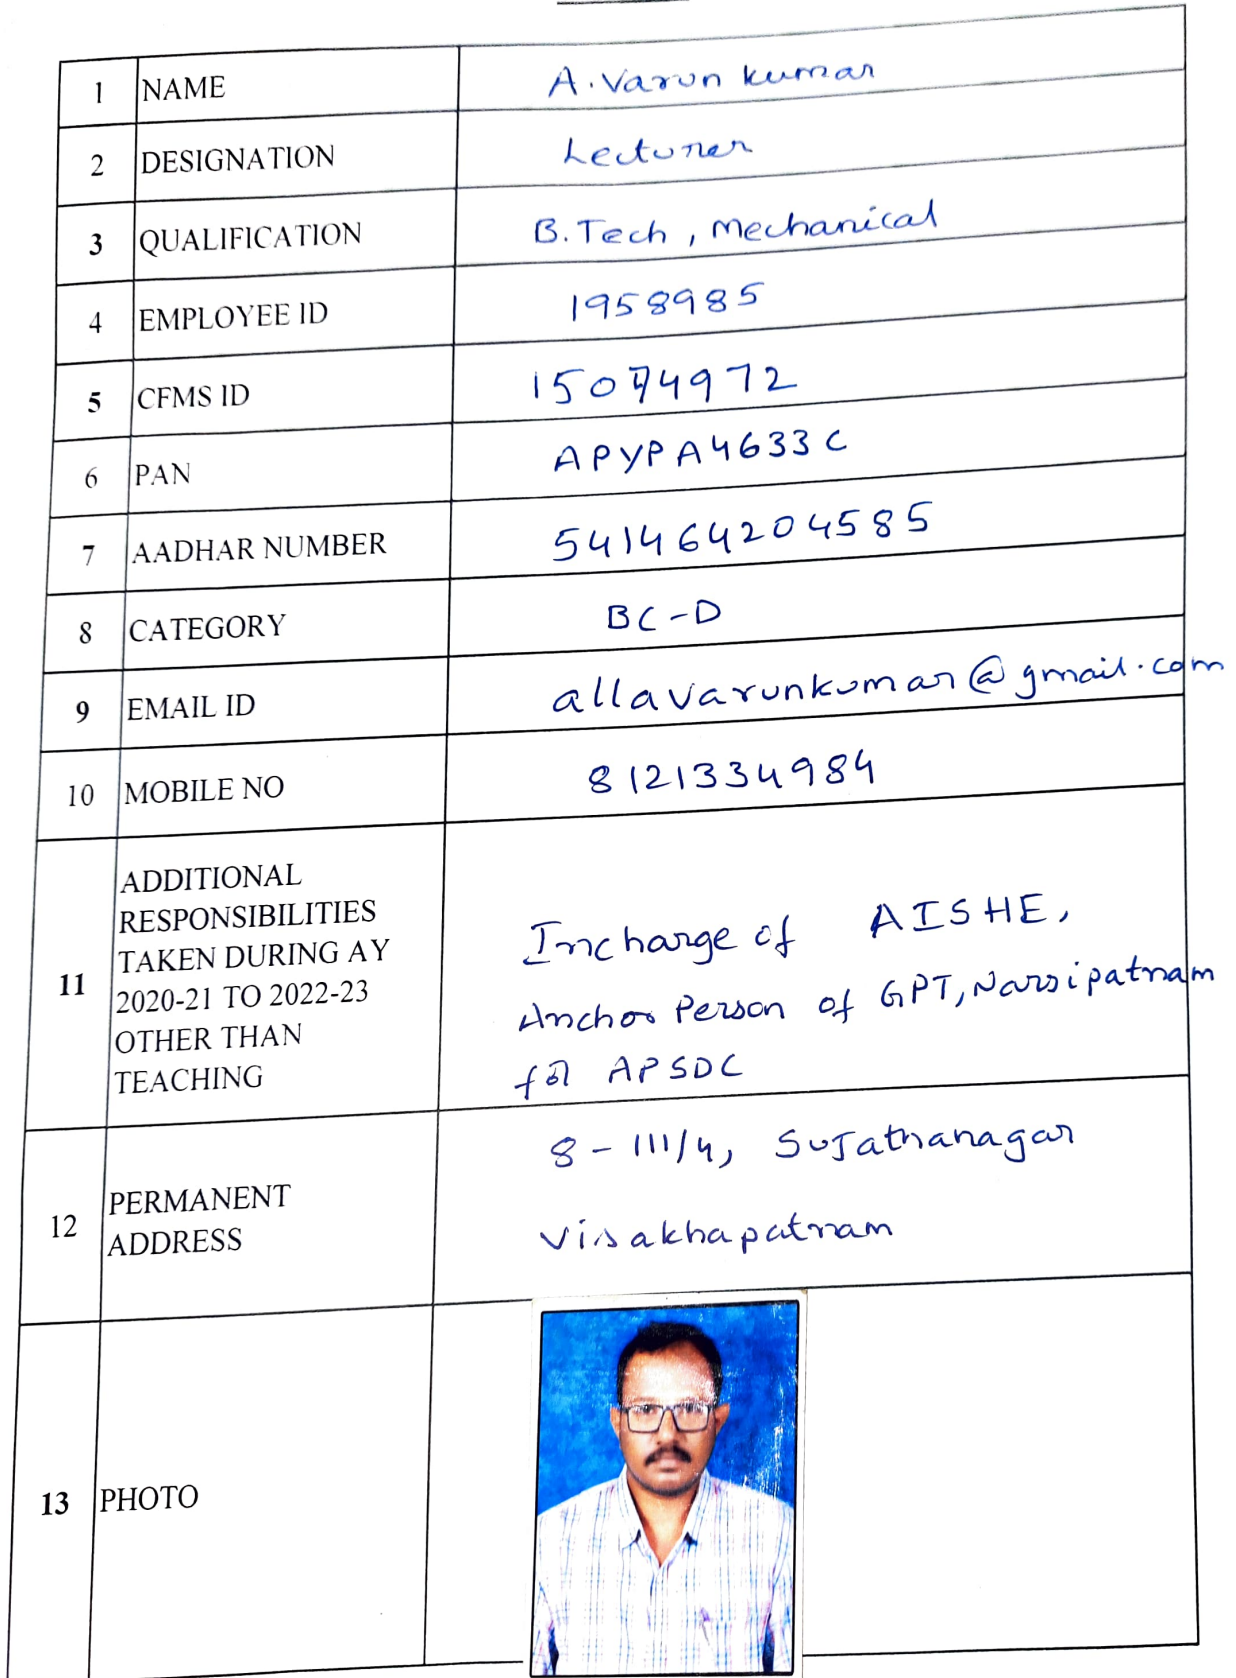 1 NAME A. Varun kumar
2 DESIGNATION Lecturer
3 QUALIFICATION B.Tech, Mechanical
4 EMPLOYEE ID 1958985
5 CFMS ID 15074972
6 PAN APYPA4633C
7 AADHAR NUMBER 541464204585
8 CATEGORY BC-D
9 EMAIL ID allavarunkumar@gmail.com
10 MOBILE NO 8121334984
11
ADDITIONAL
RESPONSIBILITIES
TAKEN DURING AY
2020-21 TO 2022-23
OTHER THAN
TEACHING
Incharge of AISHE,
Anchor Person of GPT, Narsipatnam
for APSDC
12
PERMANENT
ADDRESS
8-111/4, Sujathanagar
Visakhapatnam
13 PHOTO